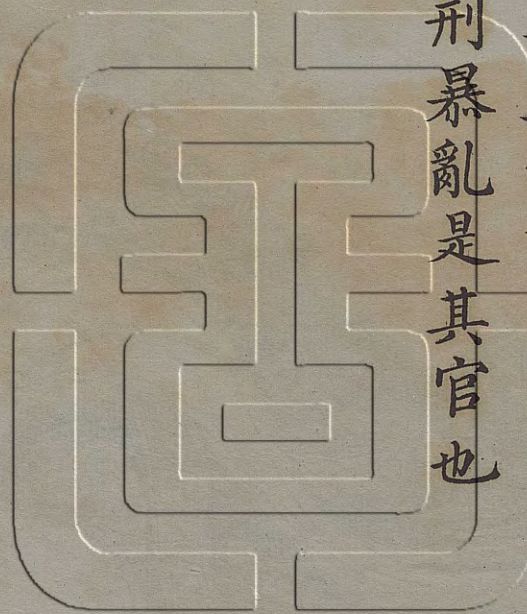 刑暴亂是其官也